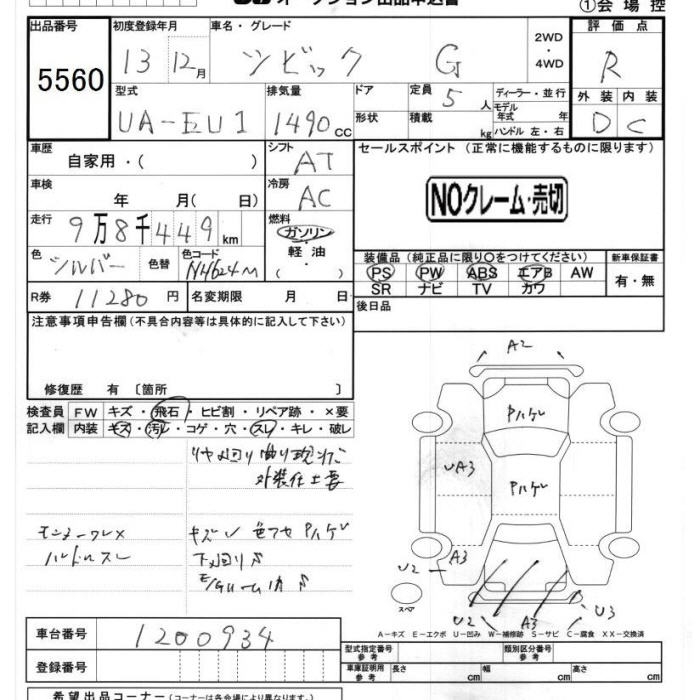 オークション出品申込書
①会場控
出品番号 初度登録年月 車名・グレード 2WD・4WD 評価点
5560 13 12月 シビック G R
型式 排気量 ドア 定員 5人 ディーラー・並行 外装 内装
UA-EU1 1490cc 形状 積載 kg モデル年式 年 ハンドル 左・右 D C
車歴 自家用・( ) シフト AT セールスポイント (正常に機能するものに限ります)
車検 年 月( 日) 冷房 AC NOクレーム・売切
走行 9万8千449km 燃料 ガソリン・軽油・( )
色 シルバー 色替 色コード NH624M
装備品 (純正品に限り○をつけてください) 新車保証書
PS PW ABS エアB AW 有・無
SR ナビ TV カワ
R券 11280円 名変期限 月 日 後日品
注意事項申告欄 (不具合内容等は具体的に記入して下さい)
修復歴 有 〔箇所 〕
検査員 FW キズ・飛石・ヒビ割・リペア跡・×要
記入欄 内装 キズ・汚レ・コゲ・穴・スレ・キレ・破レ
外装仕上要
ハンドルスレ
キズ 色アセ Pハゲ
下廻りサ
A2
Pハゲ
UA3
Pハゲ
U2 A3
U2 A3 U3
スペア
A-キズ E-エクボ U-凹み W-補修跡 S-サビ C-腐食 XX-交換済
車台番号 1200934
型式指定番号 参考 類別区分番号 参考
登録番号
車庫証明用 参考 長さ cm 幅 cm 高さ cm
希望出品コーナー (コーナーは各会場により異なります)